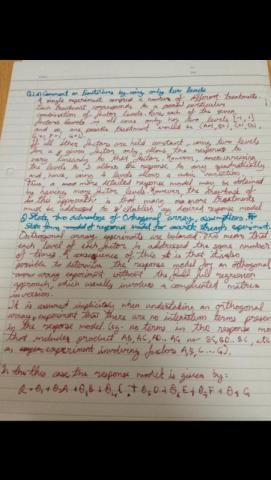 Q2(a) Comment on limitations by using only two levels
A single experiment comprised a number of different treatments.
Each treatment corresponds to a particular
combination of factor levels.
factors levels in all cases only has two levels
If all other factors are held constant, using two levels
for a given factor only allows the response to
vary linearly to that factor. However,
the levels to 3 allows the response to vary quadratically
and hence, using 4 levels allows a cubic variation.
Thus, a more detailed response model may be obtained
by having more factor levels. However, the drawback of
this approach is that many more treatments
must be undertaken to establish the desired response model
State two advantage of Orthogonal array, assumptions.
State form model of response model for experiments
Orthogonal array experiments are balanced this means that
each level of each factor is addressed the same number
of times. A consequence of this is that it is also
possible to determine the response model for an orthogonal
array experiment without the full regression
approach, which usually involves a complicated matrix
inversion.
It is assumed implicitly when undertaking an orthogonal
array experiment that there are no interaction terms present
in the response model (eg. no terms in the response model
that includes product AB, AC, AD.. AG or BC, BD.. BG, etc
an experiment involving factors A, B, C ... G).
In this case the response model is given by: